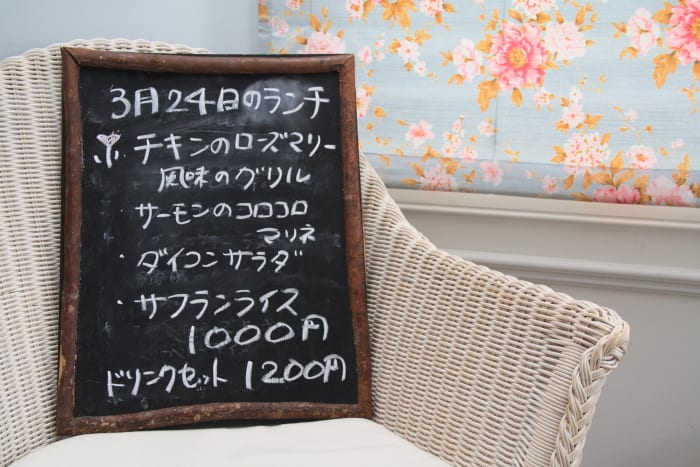 3月24日のランチ
チキンのローズマリー
風味のグリル
サーモンのコロコロ
マリネ
・ダイコンサラダ
・サフランライス
1000円
ドリンクセット 1200円